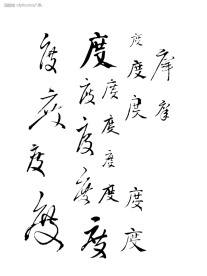 度度度度度
度度度度
度度度度度
度度度度